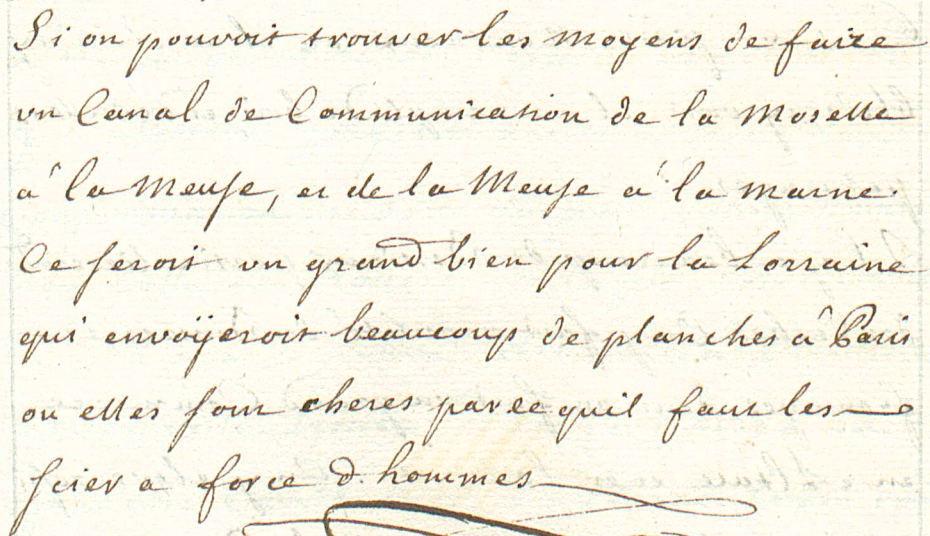 Si on pouvoit trouver les moyens de faire
un Canal de Communication de la Moselle
a' la Meuse, et de la Meuse a' la marne.
Ce seroit un grand bien pour la Lorraine
qui envoÿeroit beaucoup de planches a' Paris
ou elles sont cheres parce quil faut les
scier a force d'hommes